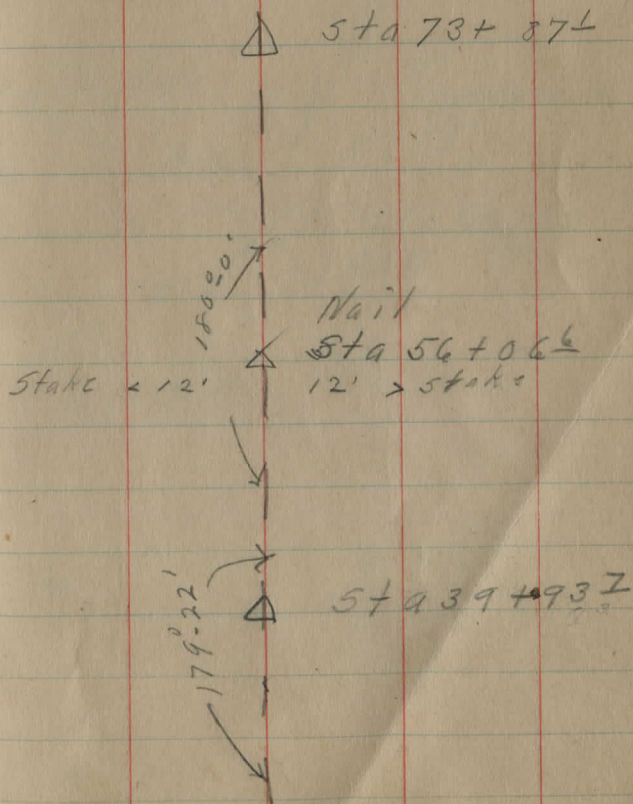 Sta 73+87<u>1</u>
180°-0'
Nail
Sta 56+06<u>6</u>
Stake < 12' 12' > stake
179°-22'
Sta 39+93<u>7</u>